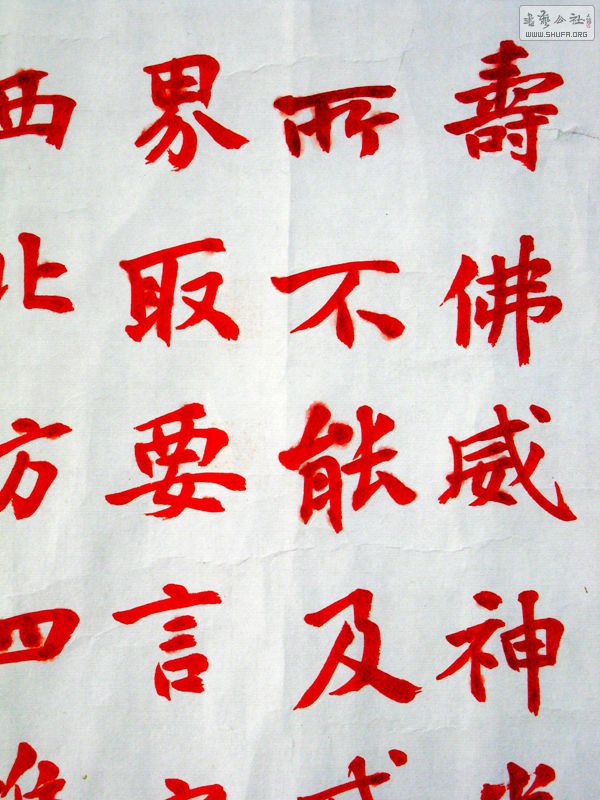 壽佛威神
所不能及
界取要言
西北方四
书艺公社
WWW.SHUFA.ORG